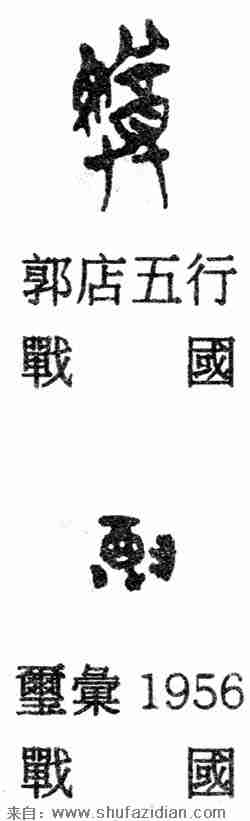 郭店五行
戰國
璽彙 1956
戰國
来自：www.shufazidian.com